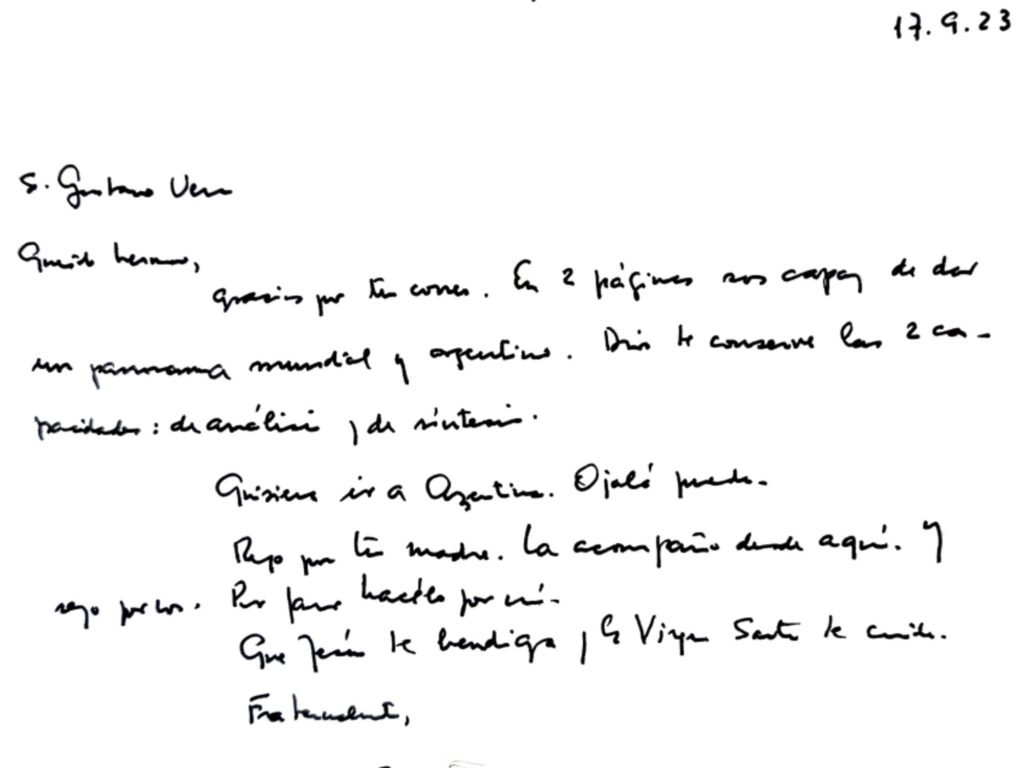 17.9.23
S. Gustavo Vera
Querido hermano,
gracias por tu correo. En 2 páginas sos capaz de dar
un panorama mundial y argentino. Dios te conserve las 2 ca-
pacidades: de análisis y de síntesis.
Quisiera ir a Argentina. Ojalá pueda.
Rezo por tu madre. La acompaño desde aquí. Y
rezo por vos. Por favor hacélo por mí.
Que Jesús te bendiga y la Virgen Santa te cuide.
Fraternalmente,